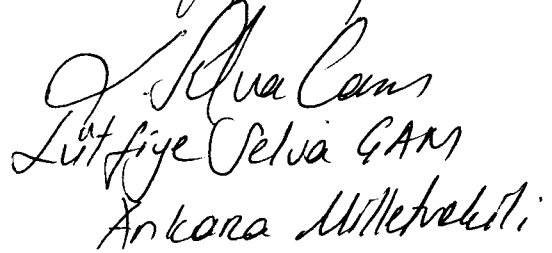 L. Selva Çam
Lütfiye Selva ÇAM
Ankara Milletvekili